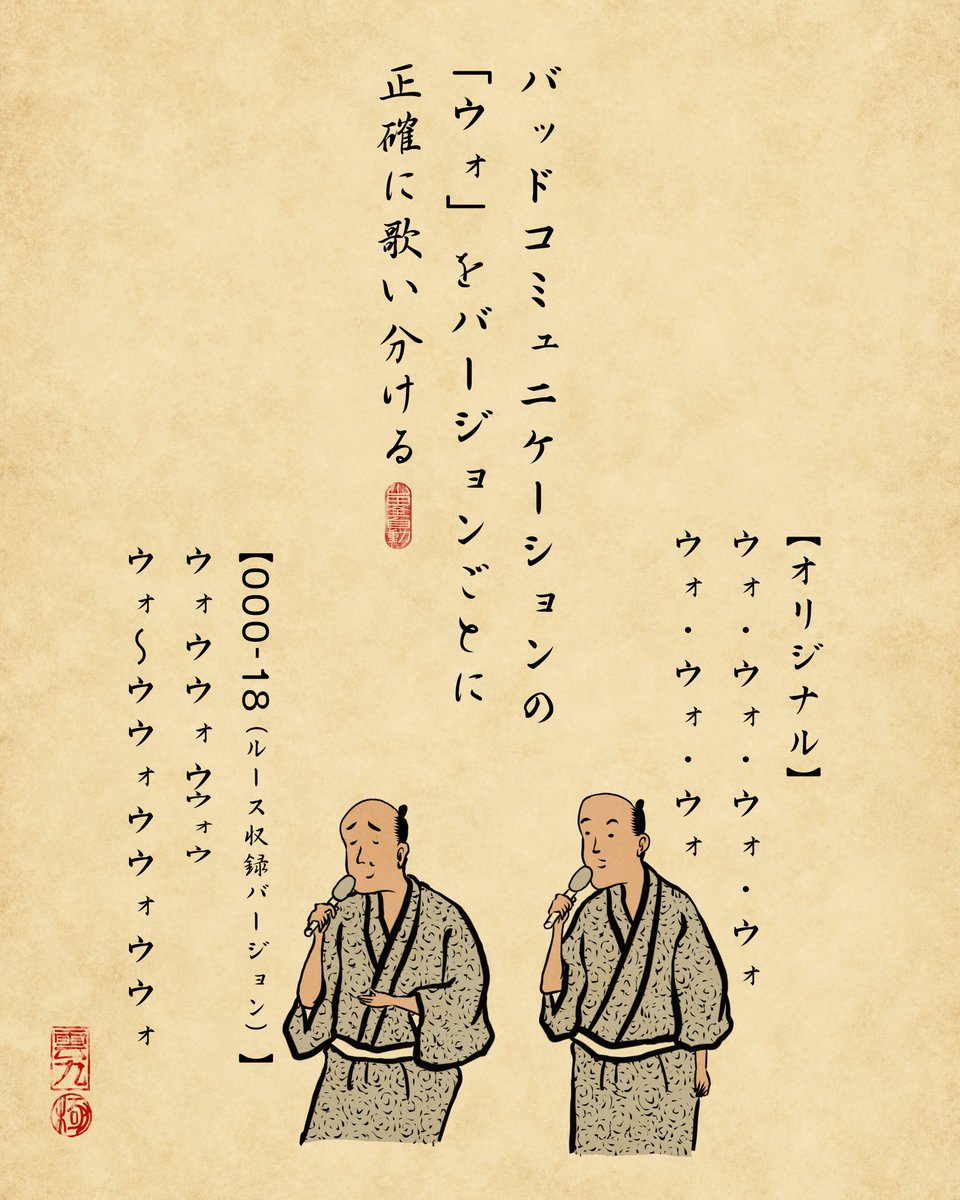 バッドコミュニケーションの
「ウォ」をバージョンごとに
正確に歌い分ける
【オリジナル】
ウォ・ウォ・ウォ・ウォ
ウォ・ウォ・ウォ
【000-18(ルース収録バージョン)】
ウォウウォウウォウ
ウォ〜ウウォウウォウウォ